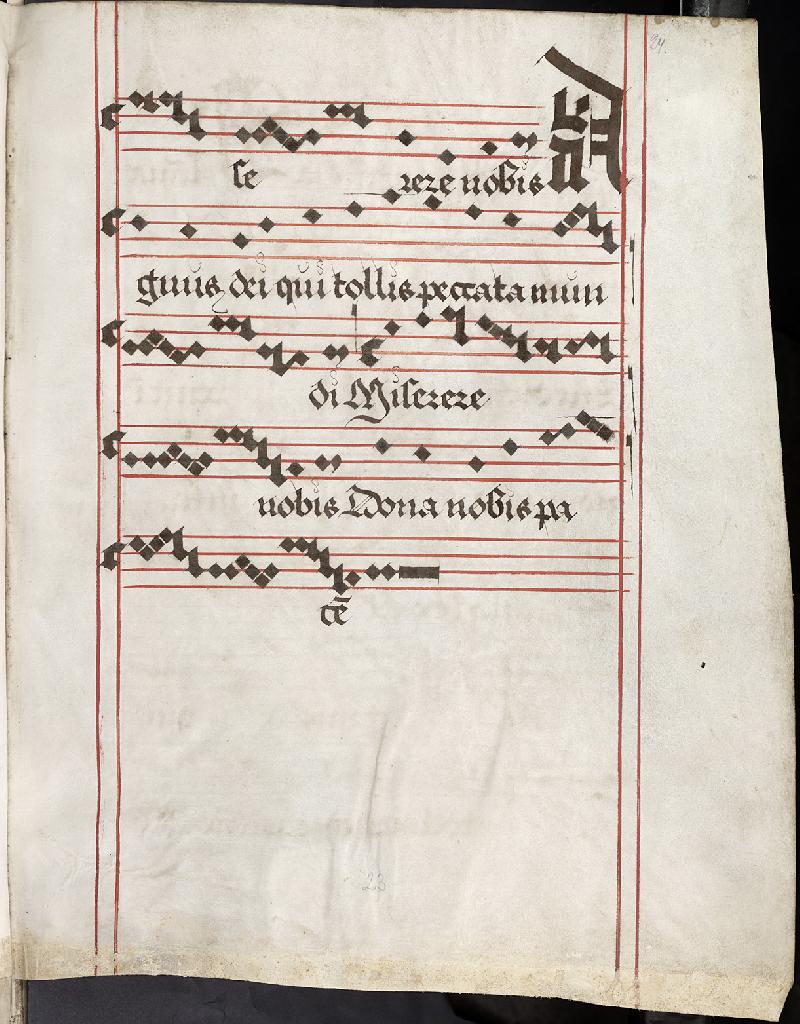 24.
se rere nobis A
gnus dei qui tollis peccata mun
di Miserere
nobis Dona nobis pa
cē
23